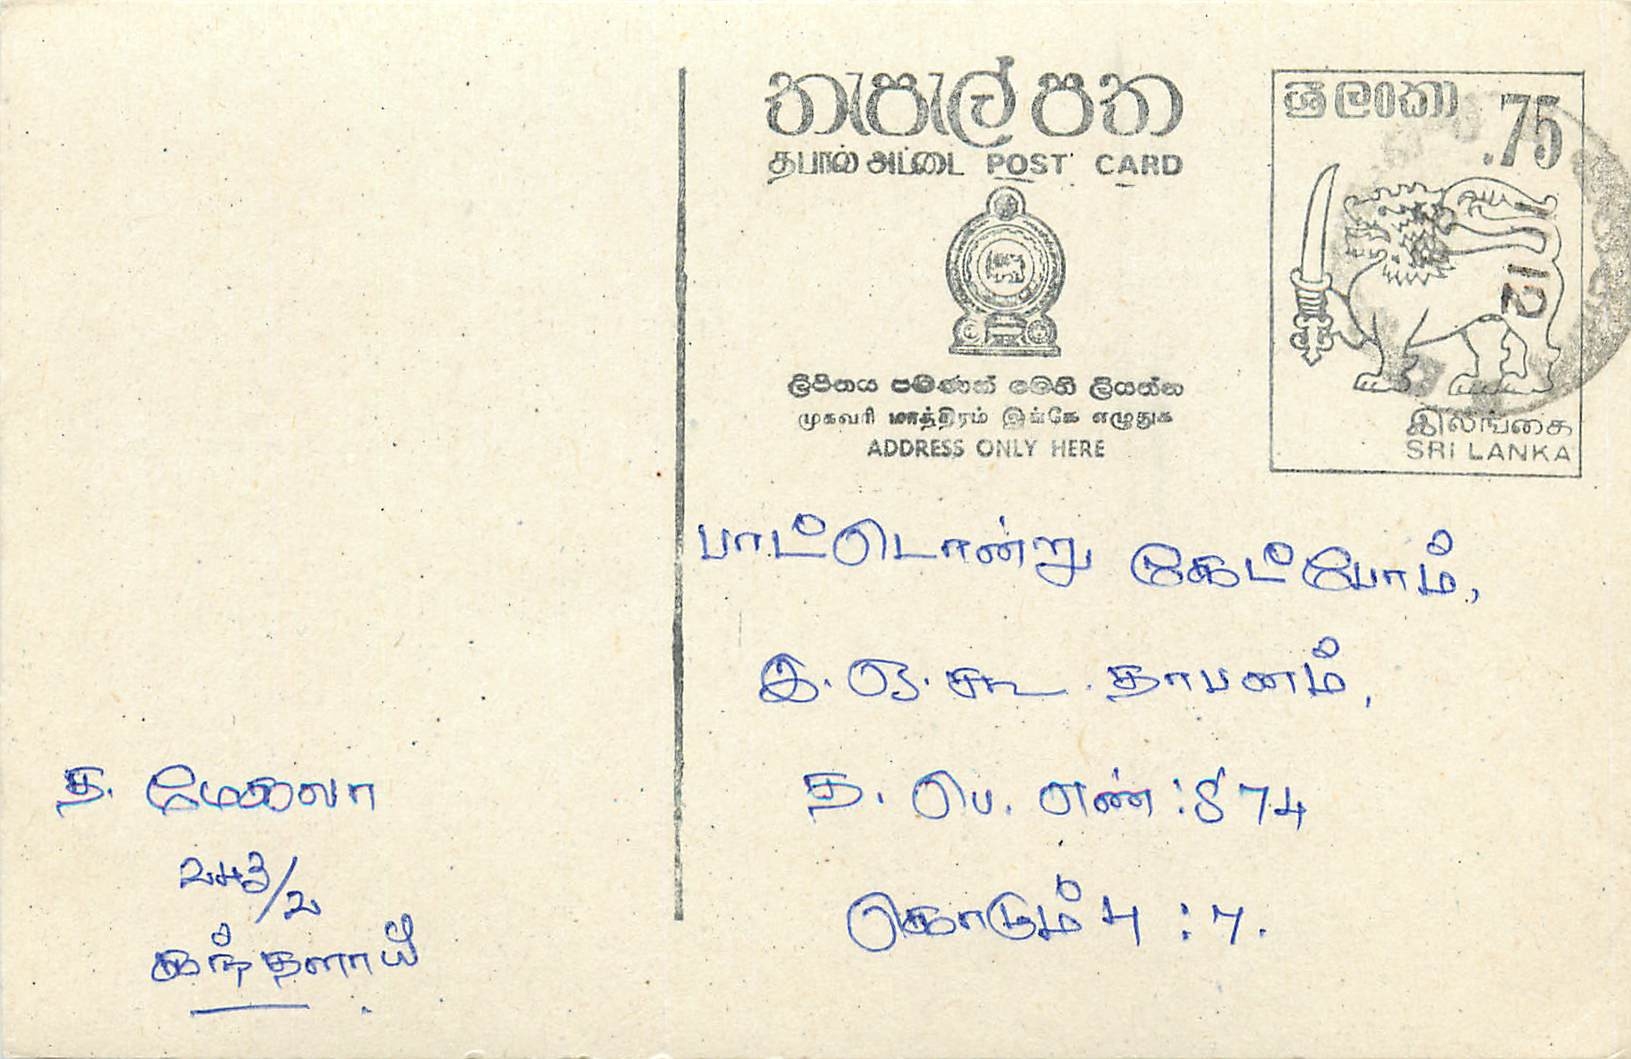 තැපැල් පත
தபால் அட்டை POST CARD
ලිපිනය පමණක් මෙහි ලියන්න
முகவரி மாத்திரம் இங்கே எழுதுக
ADDRESS ONLY HERE
ශ්‍රී ලංකා .75
12
இலங்கை
SRI LANKA
பாட்டொன்று கேட்போம்,
இ. ஒ. கூ. தாபனம்,
த. பெ. எண் : 574
கொழும்பு : 7.
த. மேகலா
243/2
கந்தளாய்